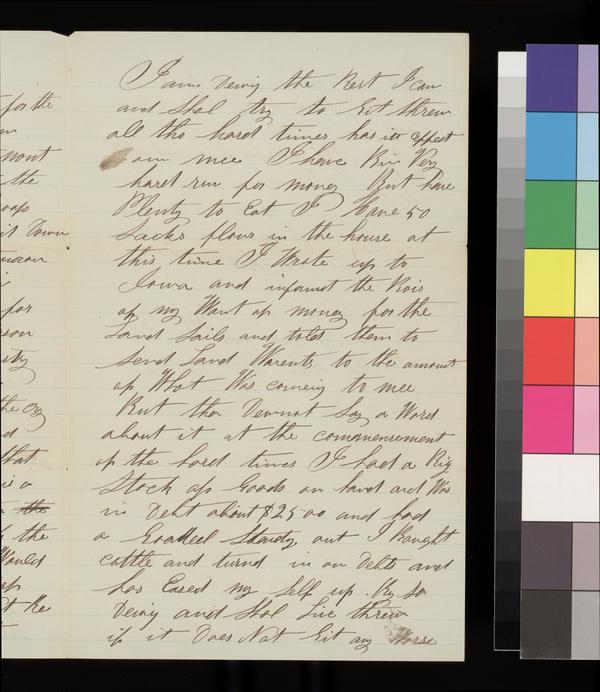 for the
mont
the
oap
it Down
for
son
the
that
is a
the
the
Would
I am Doing the Best I can
and Shal try to Git threw
all tho hard times has its effect
on mee I have Bin Very
hard run for money But have
Plenty to Eat I Have 50
Sacks flour in the house at
this time I Wrote up to
Iowa and informt the Bois
of my Want of money for the
Land Sails and told them to
Send Land Warents to the amount
of What Was comeing to mee
But tha Dewnot Say a Word
about it at the commencement
of the hard times I had a Big
Stock of Goods on hand and Was
in Debt about $2500 and had
a Good eel Standing out I Bought
cattle and turnd in on Debts and
has Eased my Self up. By so
Doing and Shal Live threw
if it Does Not Git any Worse